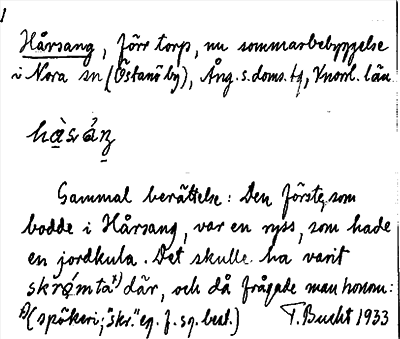 Hårsang, förr torp, nu sommarbebyggelse
i Nora sn (Östanö by), Ång. s. doms. tg, Vnorrl. län
Gammal berättelse: Den förste, som
bodde i Hårsang, var en ryss, som hade
en jordkula. Det skulle ha varit
skrǿmta¹) där, och då frågade man honom:
¹) (spökeri; "skr." eg. f. sq. best.) T. Bucht 1933